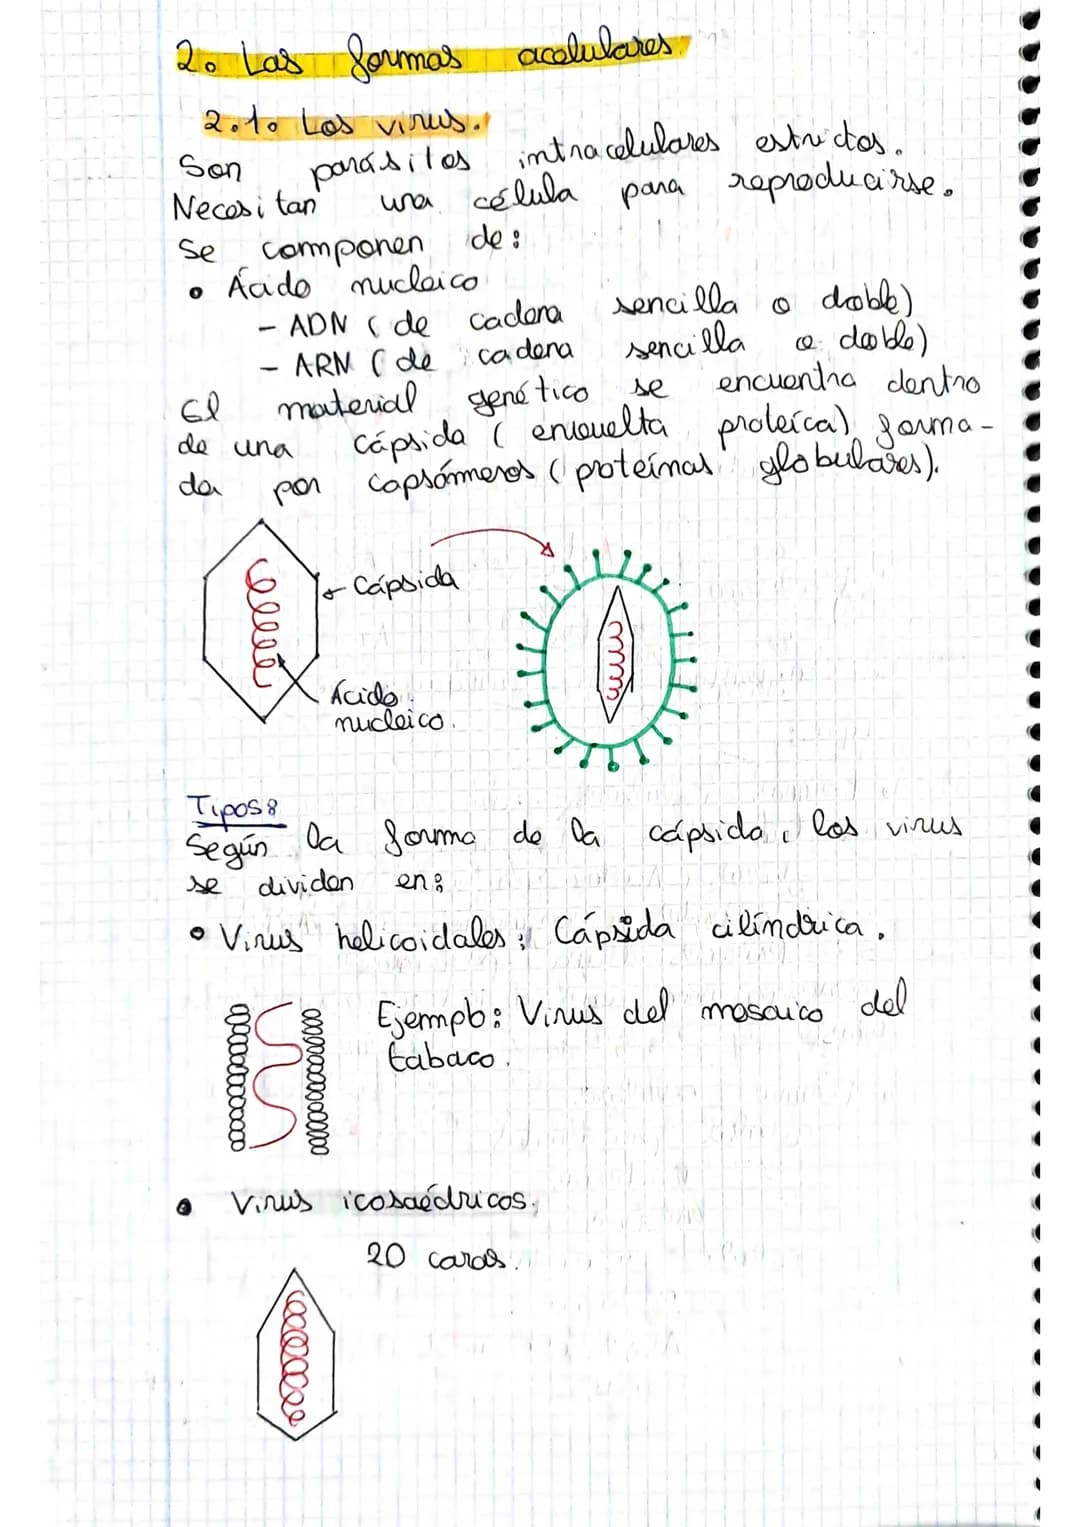 2. Las formas acelulares.
2.1. Los virus.
Son parásitos intracelulares estrictos.
Necesitan una célula para reproducirse.
Se componen de:
• Ácido nucleico
- ADN (de cadena sencilla o doble)
- ARN (de cadena sencilla o doble)
El material genético se encuentra dentro
de una cápsida (envuelta proteíca) forma-
da por capsómeros (proteínas globulares).
Cápsida
Ácido
nucleico.
Tipos:
Según la forma de la cápsida, los virus
se dividen en:
• Virus helicoidales: Cápsida cilíndrica.
Ejemplo: Virus del mosaico del
tabaco.
• Virus icosaédricos.
20 caras.